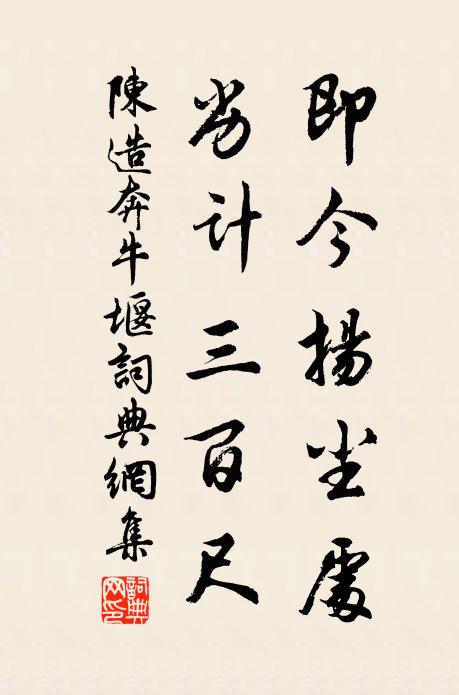 即今揚尘處
劣計三百尺
陳造奔牛堰詞典網集
詞典
网印